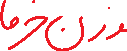 وزن خرما